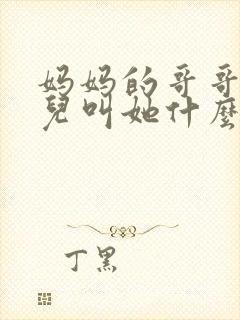 妈妈的哥哥
兒叫她什麼
丁黑